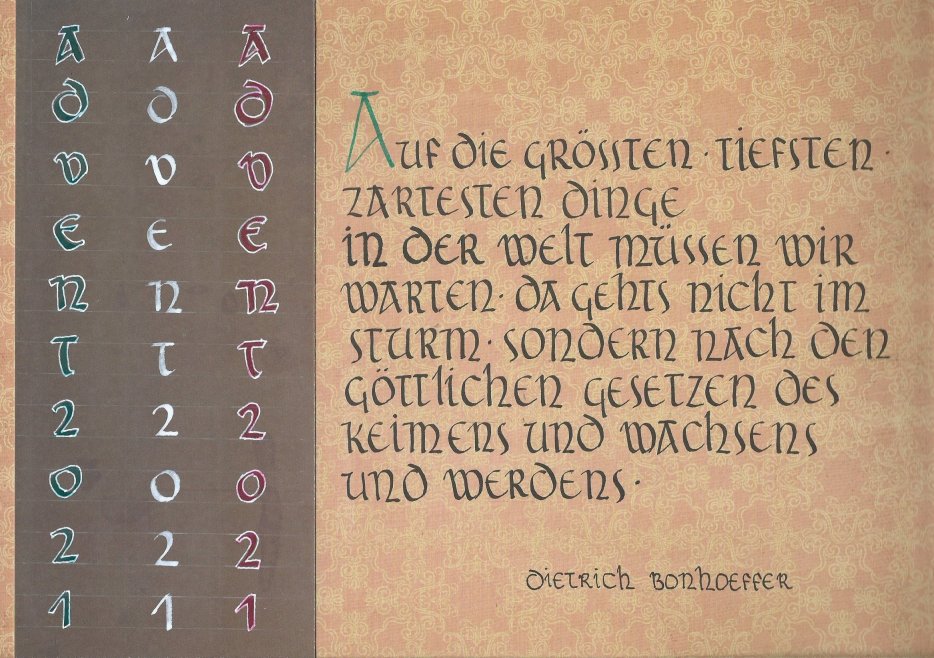 A A A
D D D
V V V
E E E
N N N
T T T
2 2 2
0 0 0
2 2 2
1 1 1
Auf die grössten · tiefsten ·
zartesten Dinge
in der Welt müssen wir
warten · da gehts nicht im
Sturm · sondern nach den
göttlichen Gesetzen des
Keimens und Wachsens
und Werdens ·
Dietrich Bonhoeffer